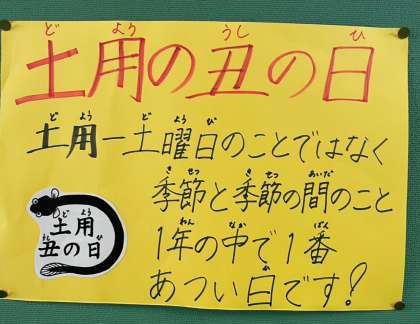 土用の丑の日
土用ー土曜日のことではなく
季節と季節の間のこと
1年の中で1番
あつい日です!
土用
丑の日